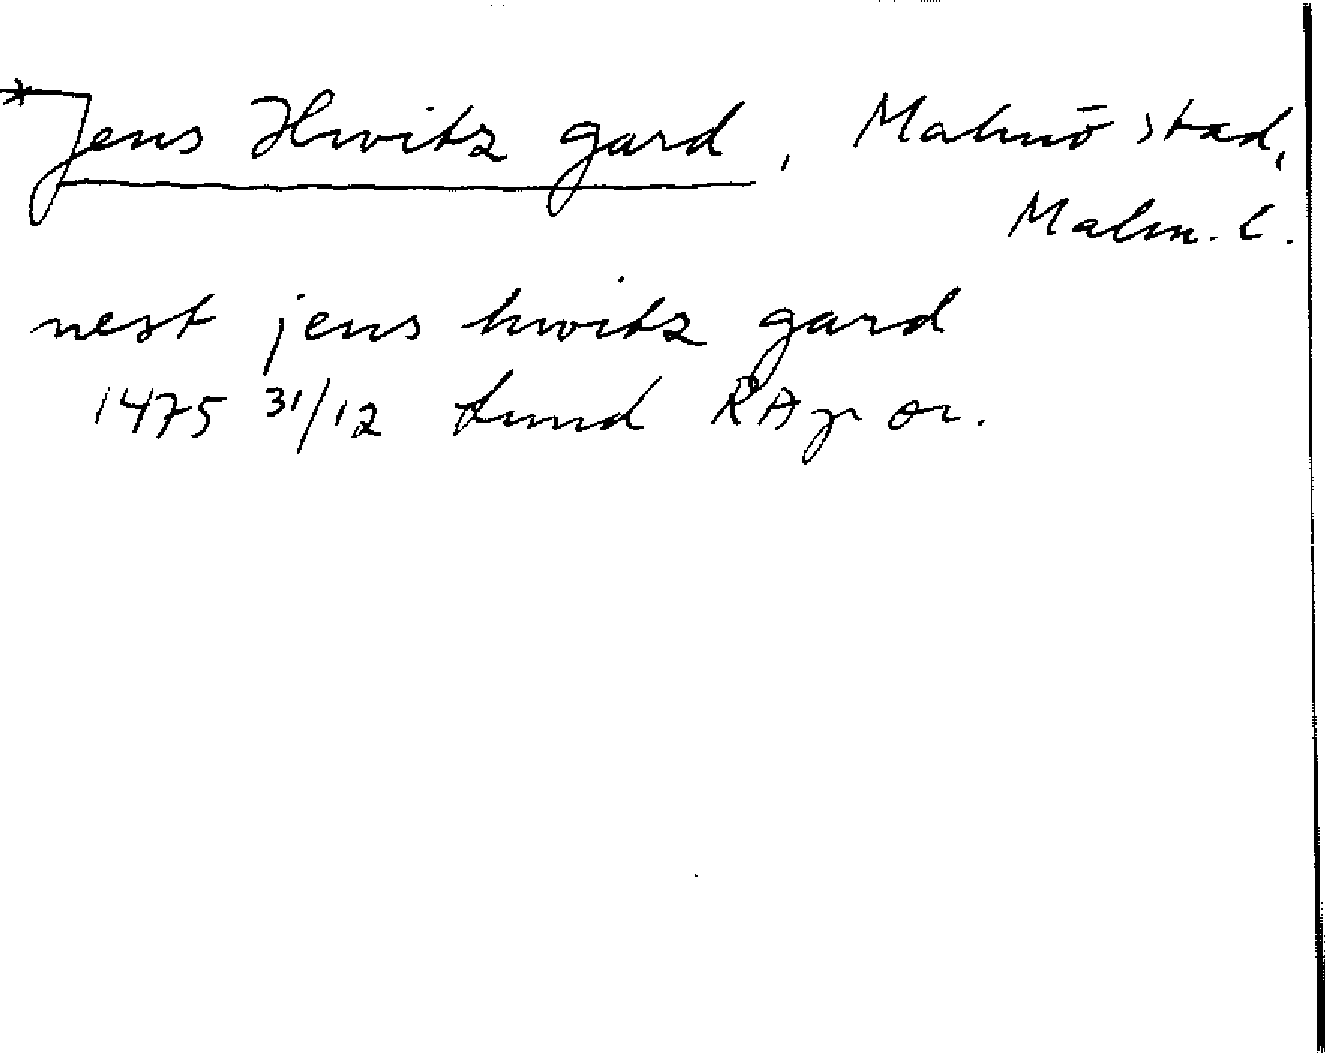 *Jens Hwitz gard, Malmö stad,
Malm. l.
nest jens hwitz gard
1475 31/12 Lund RAp or.